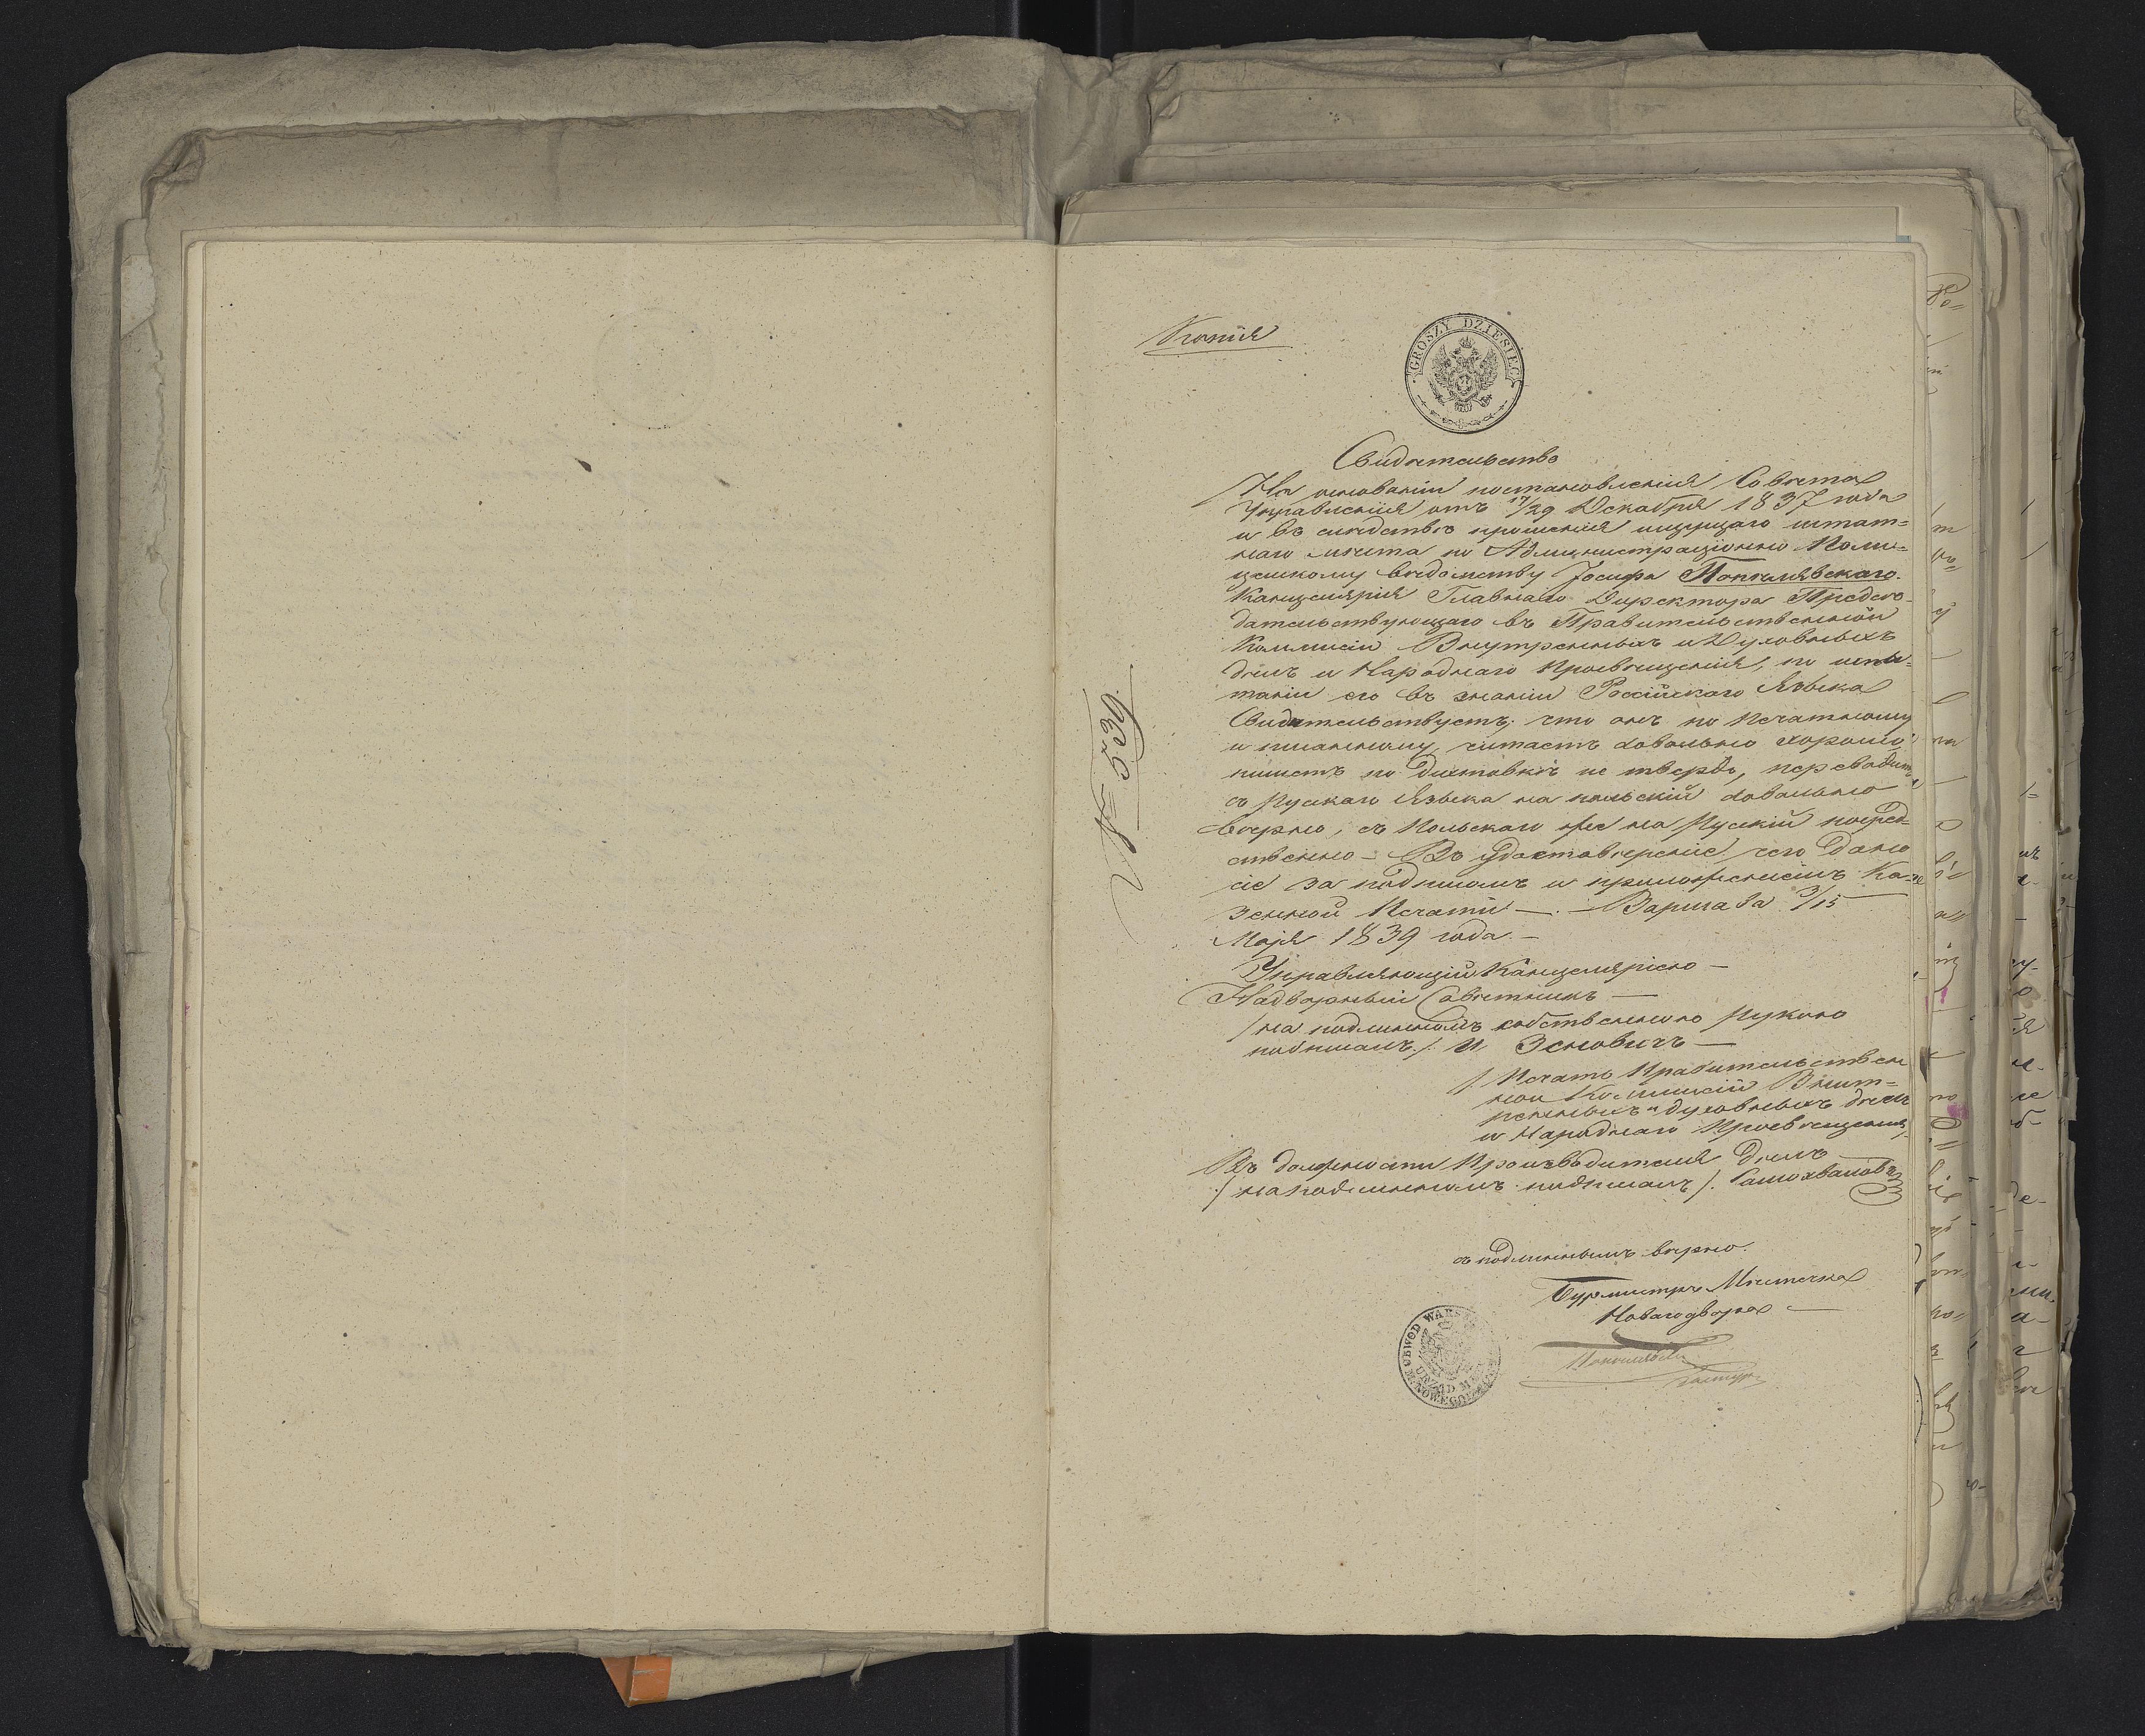 Копія
GROSZY DZIESIĘĆ
Свидѣтельство
На основаніи постановленія Совѣта
Управленія отъ 17/29 Декабря 1837 года
и въ слѣдствіе прошенія ищущаго штат=
наго мѣста по Административно Поли=
цейскому вѣдомству Іосифа
Канцелярія Главнаго Директора Предсѣ-
дательствующаго въ Правительственной
Коммисіи Внутреннихъ и Духовныхъ
дѣлъ и Народнаго Просвѣщенія, по испы=
таніи его въ знаніи Россійскаго Языка
Свидѣтельствуетъ, что онъ по печатному
и писанному, читаетъ довольно хорошо
пишетъ по диктовкѣ не твердо, переводитъ
съ Рускаго Языка на польскій довольно
вѣрно, съ Польскаго же на Рускій посред=
ственно – Въ удостовѣреніе чего дано
сіе за подписомъ и приложеніемъ Ка-
зенной Печати —. — Варшава 3/15
Маія 1839 года. —
№ 539.
Управляющій Канцеляріею —
Надворный Совѣтникъ —
/на подлинномъ собственною Рукою
подписалъ/. И Зеновичъ —
/. Печать Правительствен
ной Коммисіи Внут=
реннихъ и духовныхъ дѣлъ
и Народнаго Просвѣщенія/.
Въ должности Производителя Дѣлъ
/на подлинномъ подписалъ/. Самохваловъ
съ подлиннымъ вѣрно.
Бурмистръ Мѣстечка
Новагодвора —
OBWÓD WARS
URZĄD M
M. NOWEGO